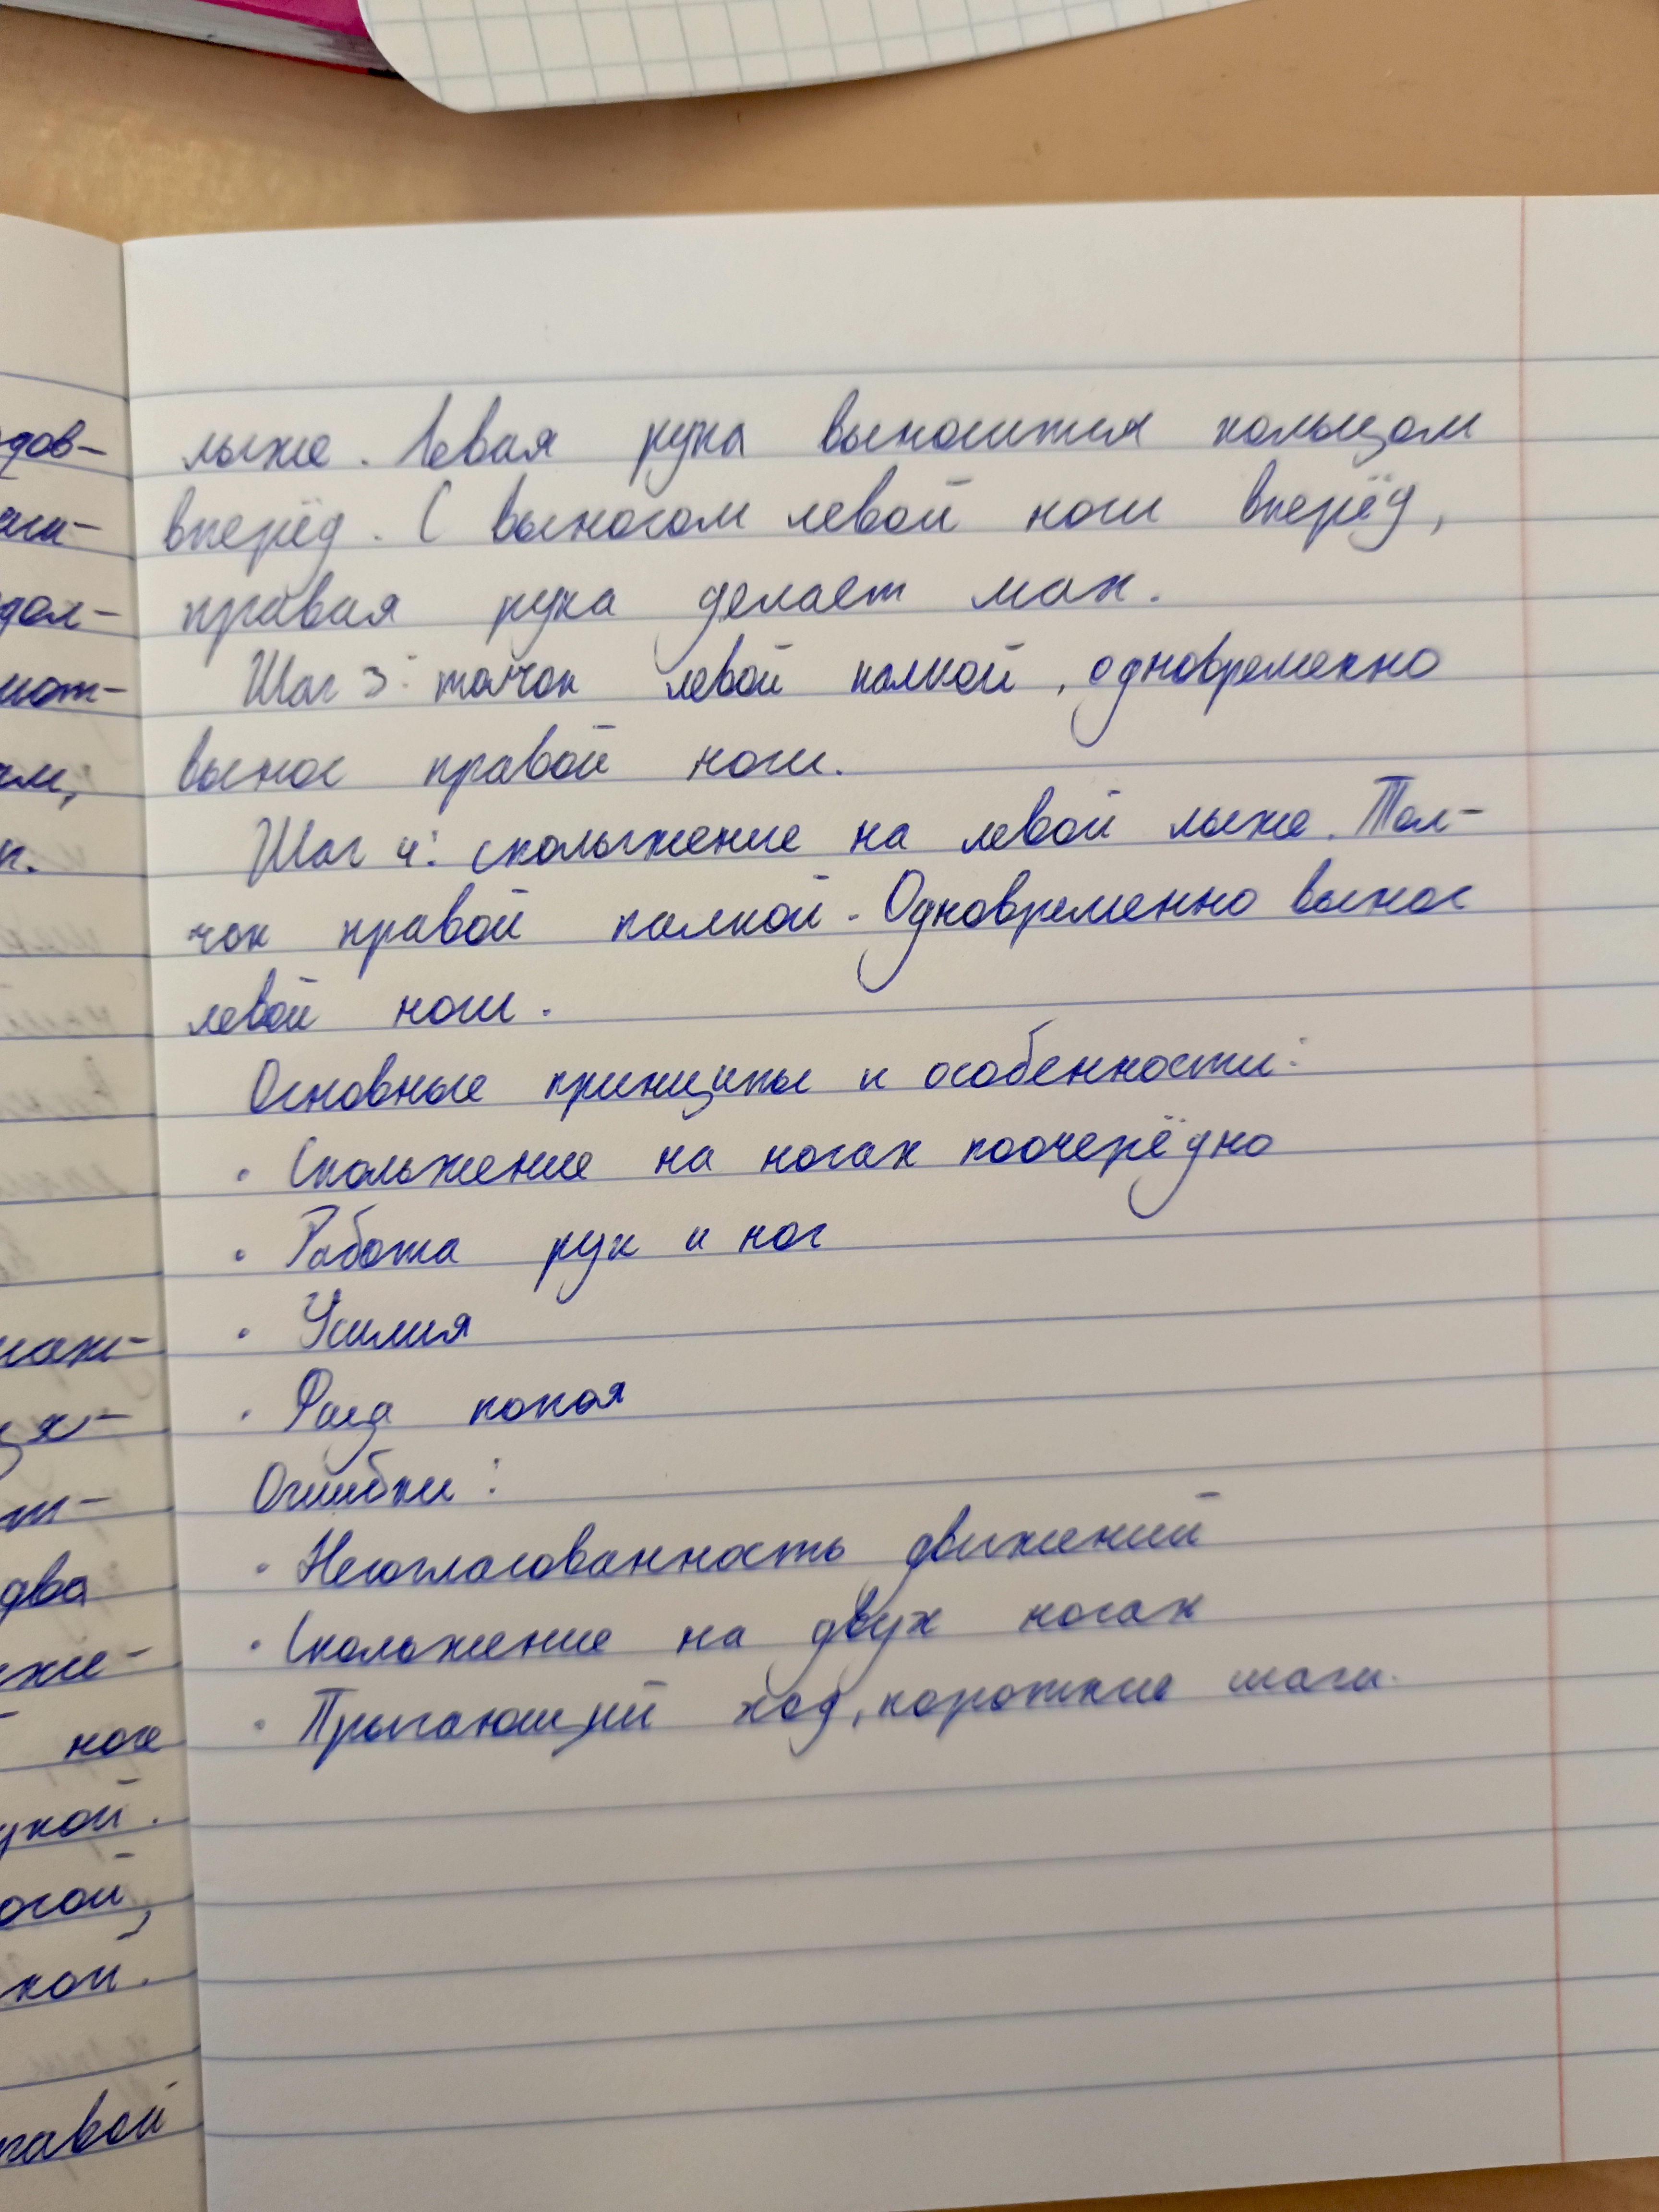 лыже. Левая рука выносится кольцом
вперёд. С выносом левой ноги вперёд,
правая рука делает мах.
Шаг 3: толчок левой палкой, одновременно
вынос правой ноги.
Шаг 4: скольжение на левой лыже. Тол-
чок правой палкой. Одновременно вынос
левой ноги.
Основные принципы и особенности:
· Скольжение на ногах поочерёдно
· Работа рук и ног
· Усилия
· Фаза покоя
Ошибки:
· Несогласованность движений
· Скольжение на двух ногах
· Прыгающий ход, короткие шаги.
два
ноге